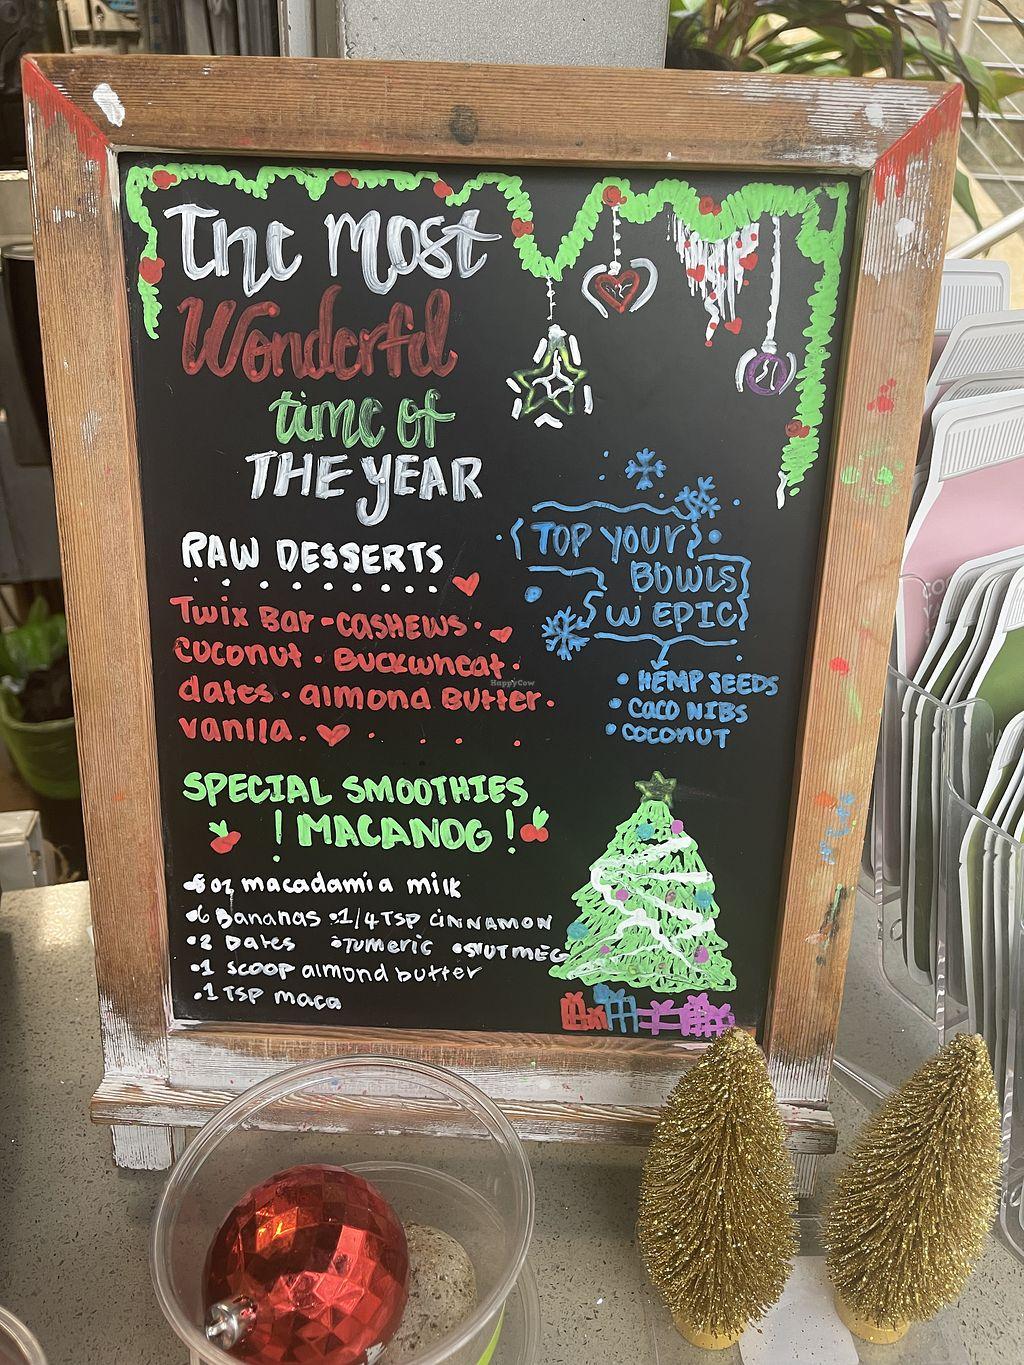 The Most
Wonderful
time of
THE YEAR
RAW DESSERTS
Twix Bar - CASHEWS .
coconut . Buckwheat .
dates . almond Butter .
vanilla .
TOP YOUR
BOWLS
W EPIC
• HEMP SEEDS
• CACO NIBS
• COCONUT
SPECIAL SMOOTHIES
! MACANOG !
oz macadamia milk
•6 Bananas •1/4 TSP CINNAMON
•2 Dates •Tumeric •NUTMEG
•1 scoop almond butter
•1 TSP maca
HappyCow